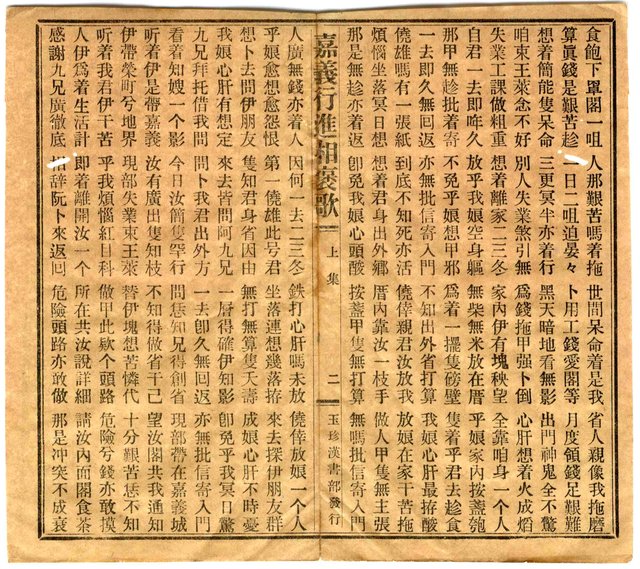 食飽下罩閣一咀 人那艱苦嗎着拖 世間呆命着是我 省人親像我拖磨
算眞錢是艱苦趁 一日二咀迫晏々 卜用工錢愛閣等 月度領錢足艱難
想着簡能隻呆命 三更冥半亦着行 黑天暗地看無影 出門神鬼全不驚
咱東王萊念不好 別人失業煞引無 為錢拖甲强卜倒 心肝想着火成熖
失業工課做粗重 想着離家二三冬 家內伊有塊秧望 全靠咱身一個人
自君一去即年久 放乎我娘空身軀 無柴無米放在厝 乎娘家內按盞匏
那甲無趁批着寄 不免乎娘想甲邪 爲着一擺隻磅壁 隻着乎君去趁食
一去即久無回返 亦無批信寄入門 不知出外省打算 我娘心肝最拵酸
僥雄嗎有一張紙 到底不知死亦活 僥倖親君汝放我 放娘在家干苦拖
煩惱坐落冥日想 君身出外鄉 厝內靠汝一枝手 做人甲隻無主張
那是無趁亦着返 卽免我娘心頭酸 按盞甲隻無打算 無嗎批信寄入門
嘉義行進相褒歌 上集 二 玉珍漢書部發行
人廣無錢亦着人 因何一去二三冬 鐵打心肝嗎未放 僥倖放娘一個人
乎娘愈想愈怨恨 第一僥雄此号君 坐落連想幾落拵 來去探伊朋友群
想卜去問伊朋友 隻知君身省因由 無打無算隻夭壽 成娘心肝不時憂
我娘心肝有想定 來去皆問阿九兄 一厝得確伊知影 卽免乎我冥日驚
九兄拜托借我問 問卜我君出外方 一去卽久無回返 亦無批信寄入門
看着知嫂一個影 今日汝簡隻罕行 問恁知兄得創省 現部帶在嘉義城
听着伊是帶嘉義 汝有廣出隻知枝 不知得做省干己 望汝閣共我通知
伊帶榮町兮地界 現部失業東王萊 替伊塊想苦憐代 十分艱苦恁不知
听着我君伊干苦 乎我煩惱紅目科 做甲此欵个頭路 危險兮錢亦敢摸
人伊爲着生活計 卽着離開汝一个 所在共汝說詳細 請汝內面閣食茶
感謝九兄廣徹底 相辞阮卜來返囬 危險頭路亦敢做 那是冲突不成衰